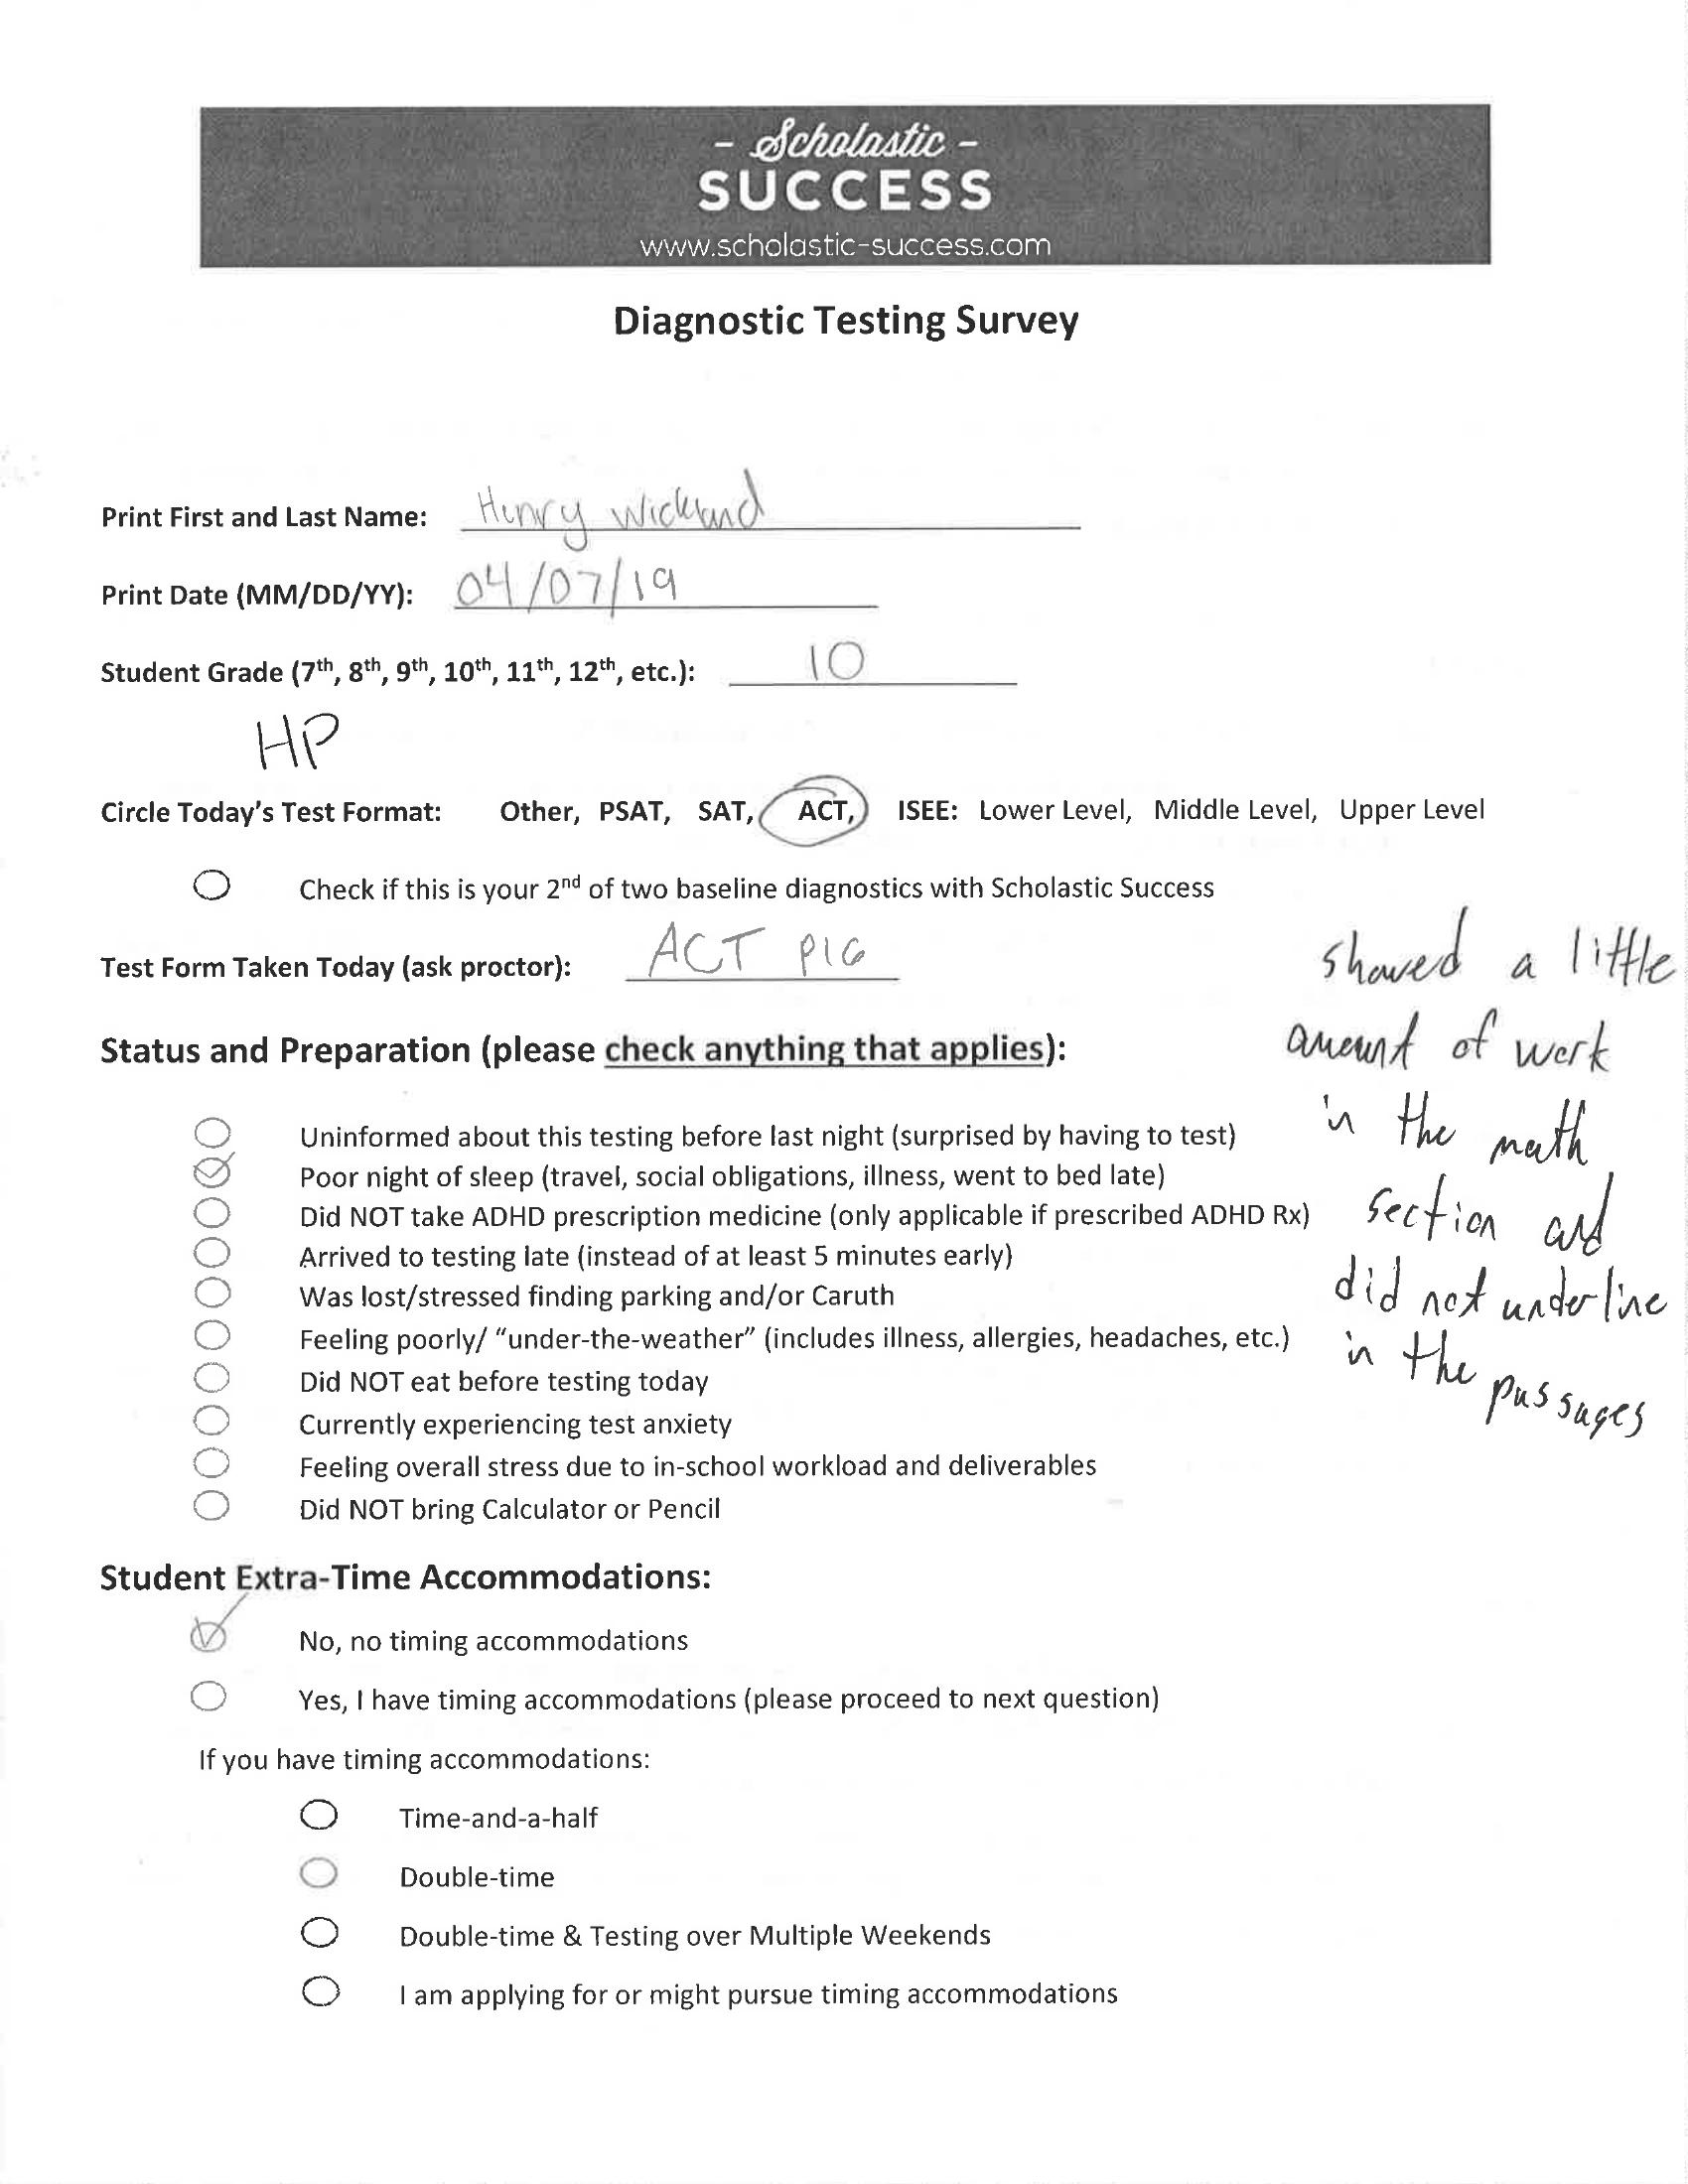 - Scholastic -
SUCCESS
www.scholastic-success.com
Diagnostic Testing Survey
Print First and Last Name: Henry
Print Date (MM/DD/YY): 04/07/19
Student Grade (7th, 8th, 9th, 10th, 11th, 12th, etc.): 10
HP
Circle Today's Test Format: Other, PSAT, SAT, ACT, ISEE: Lower Level, Middle Level, Upper Level
Check if this is your 2nd of two baseline diagnostics with Scholastic Success
Test Form Taken Today (ask proctor): ACT
showed a little
amount of work
in the math
section and
did not underline
in the passages
Status and Preparation (please check anything that applies):
Uninformed about this testing before last night (surprised by having to test)
Poor night of sleep (travel, social obligations, illness, went to bed late)
Did NOT take ADHD prescription medicine (only applicable if prescribed ADHD Rx)
Arrived to testing late (instead of at least 5 minutes early)
Was lost/stressed finding parking and/or Caruth
Feeling poorly/ “under-the-weather” (includes illness, allergies, headaches, etc.)
Did NOT eat before testing today
Currently experiencing test anxiety
Feeling overall stress due to in-school workload and deliverables
Did NOT bring Calculator or Pencil
Student Extra-Time Accommodations:
No, no timing accommodations
Yes, I have timing accommodations (please proceed to next question)
If you have timing accommodations:
Time-and-a-half
Double-time
Double-time & Testing over Multiple Weekends
I am applying for or might pursue timing accommodations